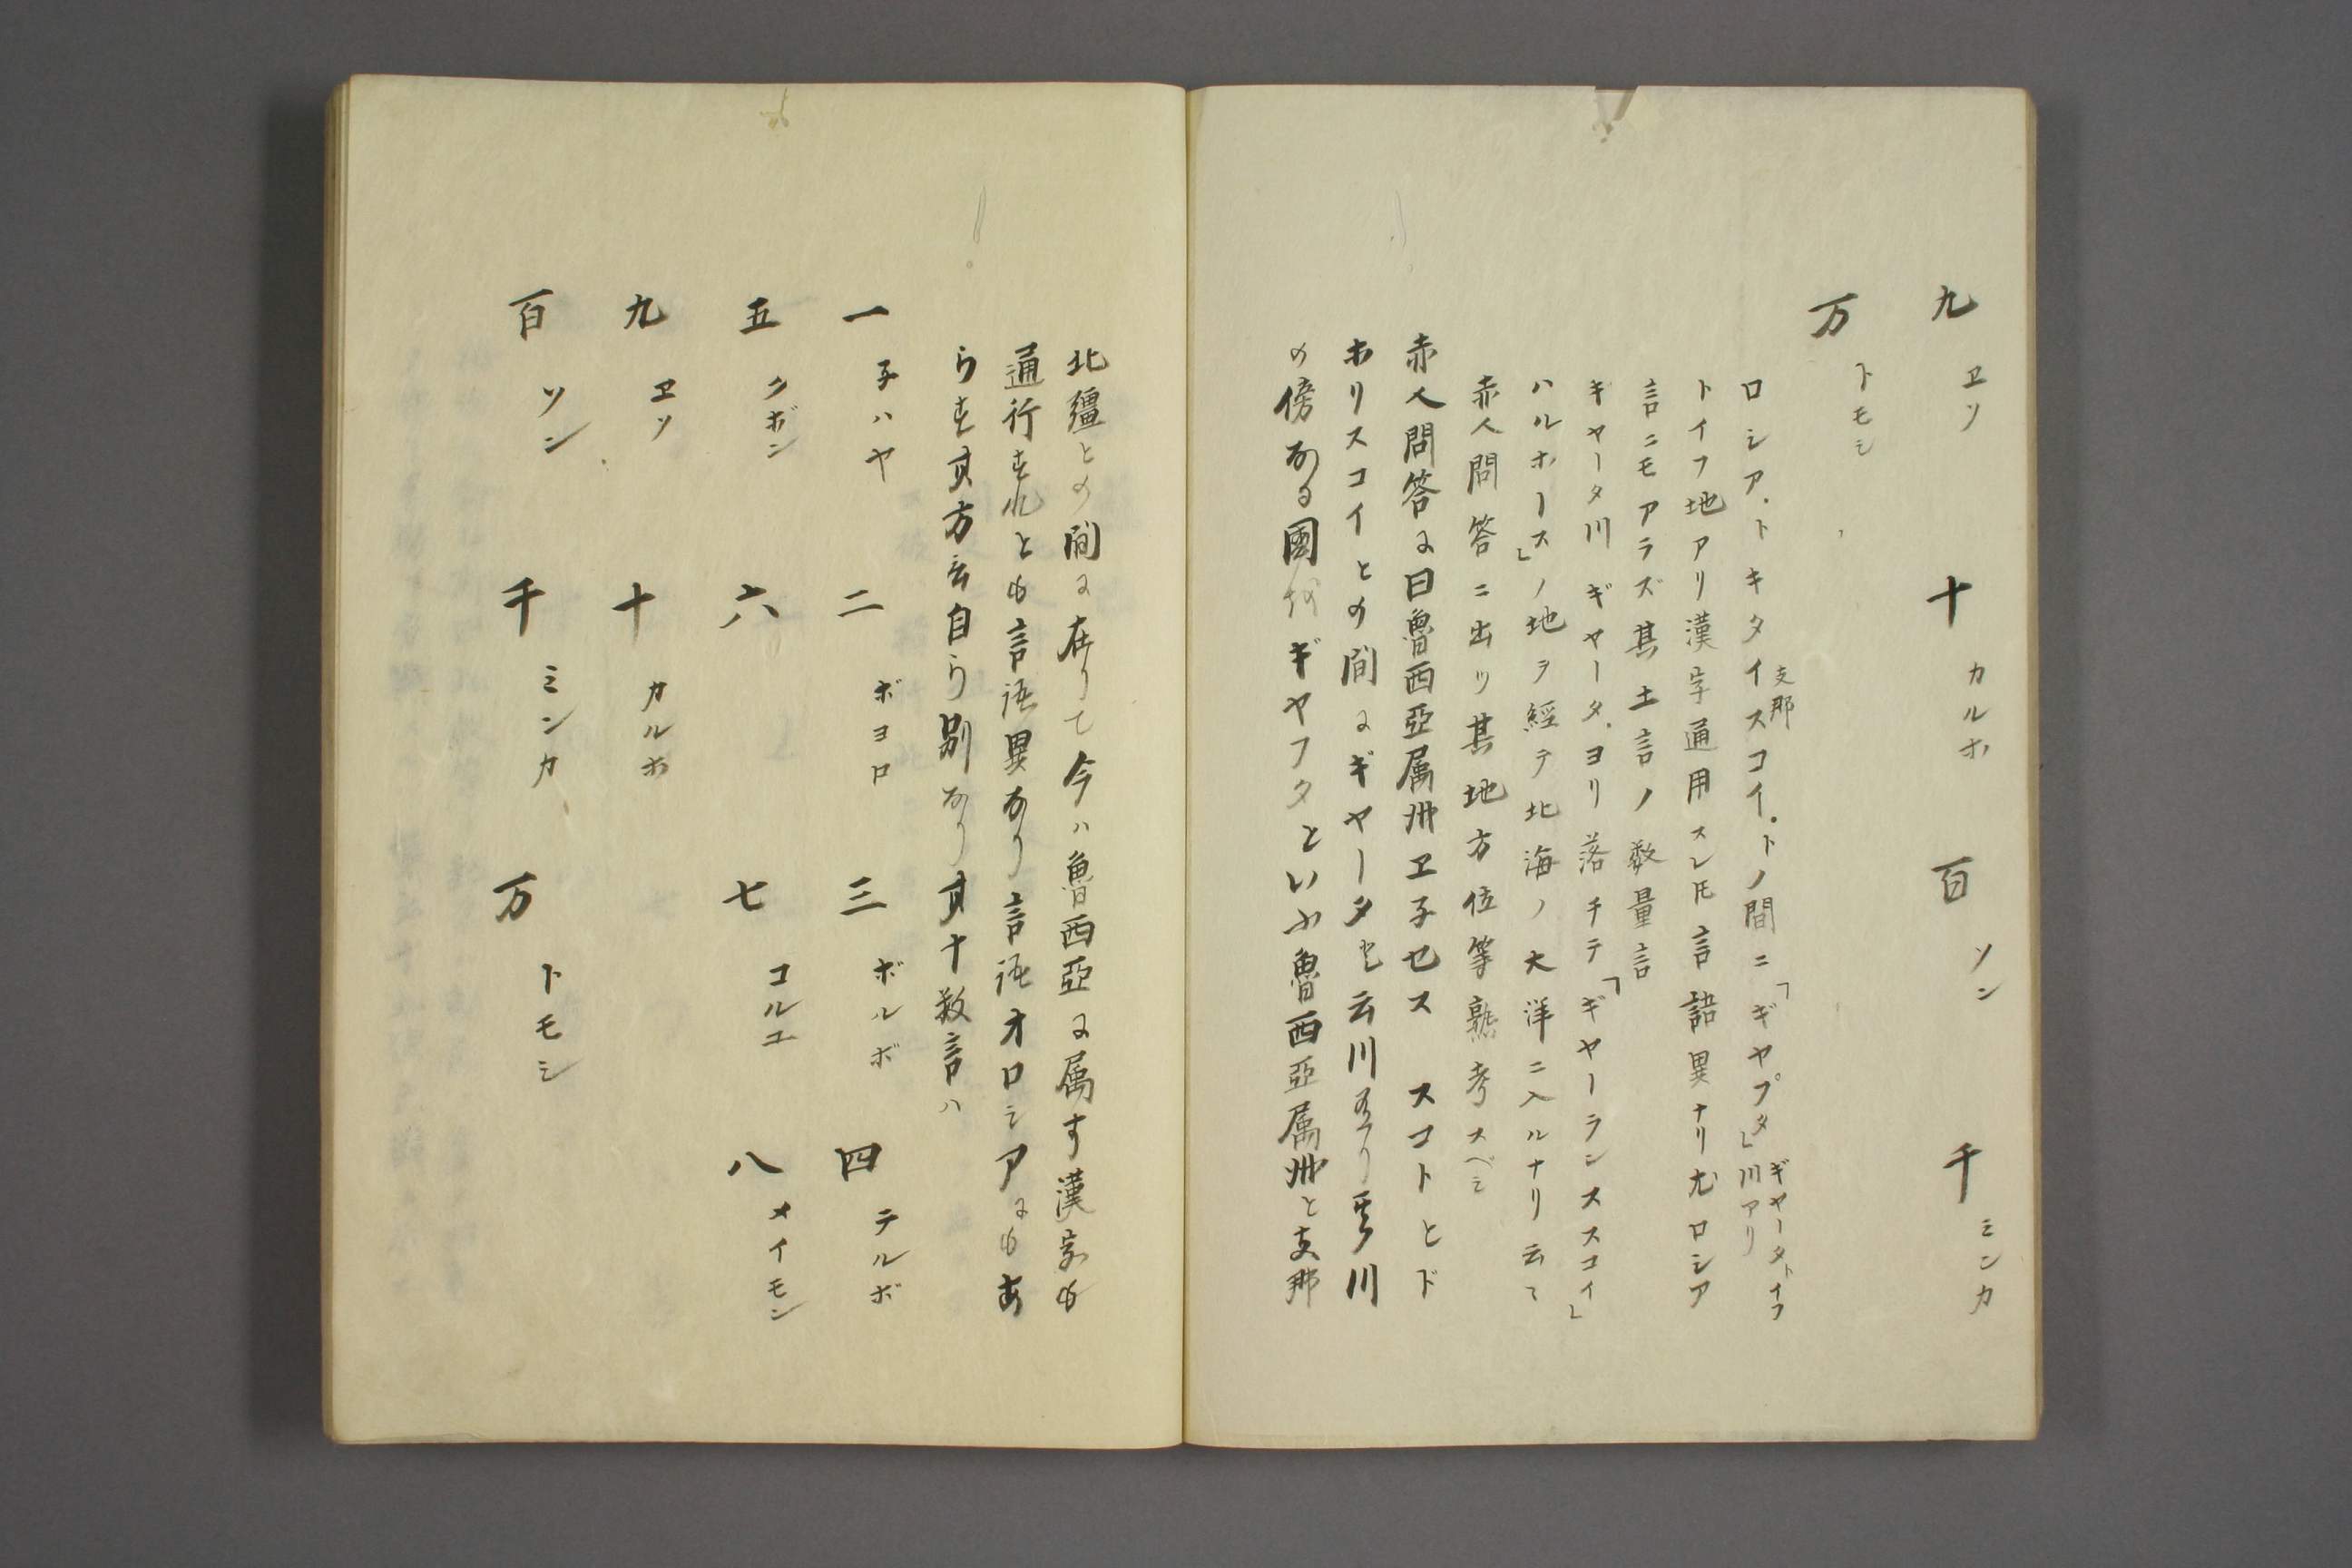 九 ヱソ 十 カルホ 百 ソン 千 ミンカ
万 トモシ
ロシア.トキタイスコイ.トノ間ニ「ギヤプタ」川アリ
支那
ギヤータトイフ
トイフ地アリ漢字通用スレ𪜈言語異ナリ尤ロシア
言ニモアラズ其土言ノ数量言
キヤータ川ギヤータ.ヨリ落チテ「ギヤーランススコイ」
ハルホース」ノ地ヲ経テ北海ノ大洋ニ入ルナリ云々
赤人問答ニ出ツ其地方位等熟考スベシ
赤人問答に曰魯西亞属州ヱ子セス スコトとド
ホリスコイとの間にギヤータと云川有り其川
の傍なる國をギヤフタといふ魯西亞属州と支那
北疆との間に在りて今ハ魯西亞に属す漢字も
通行すれとも言語異なり言語オロシアにもあ
らす其方言自ら別なり其十数言ハ
一 子ハヤ 二 ボヨロ 三 ボルボ 四 テルボ
五 クボン 六 七 コルユ 八 メイモン
九 ヱソ 十 カルホ
百 ソン 千 ミンカ 万 トモシ